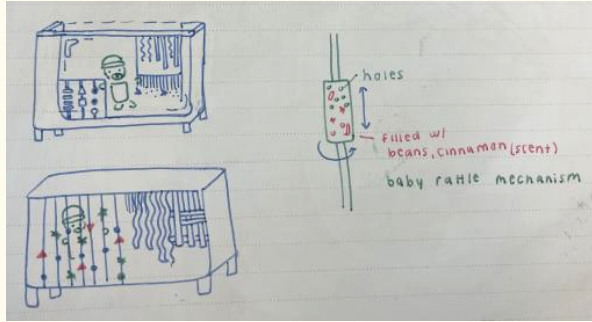 holes
filled w/
beans, cinnamon (scent)
baby rattle mechanism